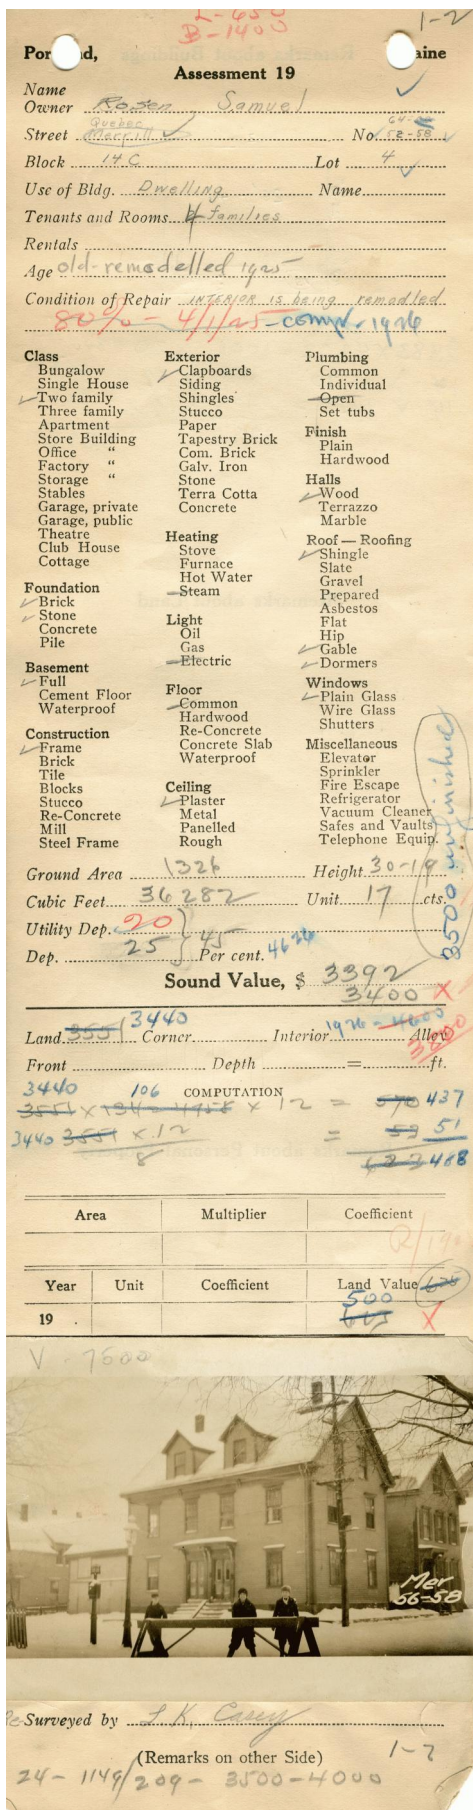 L-650
1-2
B-1400
Por and, aine
Assessment 19
Name
Owner Rosen Samuel
Quebec 64-
Street Merrill No. 52-58
Block 14 C Lot 4
Use of Bldg. Dwelling Name
Tenants and Rooms 4 families
Rentals
Age old-remodelled 1925
Condition of Repair INTERIOR is being remodled
80% - 4/1/25 - comp. - 1926
Class
Bungalow
Single House
Two family
Three family
Apartment
Store Building
Office "
Factory "
Storage "
Stables
Garage, private
Garage, public
Theatre
Club House
Cottage
Foundation
Brick
Stone
Concrete
Pile
Basement
Full
Cement Floor
Waterproof
Construction
Frame
Brick
Tile
Blocks
Stucco
Re-Concrete
Mill
Steel Frame
Exterior
Clapboards
Siding
Shingles
Stucco
Paper
Tapestry Brick
Com. Brick
Galv. Iron
Stone
Terra Cotta
Concrete
Heating
Stove
Furnace
Hot Water
Steam
Light
Oil
Gas
Electric
Floor
Common
Hardwood
Re-Concrete
Concrete Slab
Waterproof
Ceiling
Plaster
Metal
Panelled
Rough
Plumbing
Common
Individual
Open
Set tubs
Finish
Plain
Hardwood
Halls
Wood
Terrazzo
Marble
Roof — Roofing
Shingle
Slate
Gravel
Prepared
Asbestos
Flat
Hip
Gable
Dormers
Windows
Plain Glass
Wire Glass
Shutters
Miscellaneous
Elevator
Sprinkler
Fire Escape
Refrigerator
Vacuum Cleaner
Safes and Vaults
Telephone Equip.
3500 unfinished
Ground Area 1326 Height 30-19
Cubic Feet 36282 Unit 17 cts.
Utility Dep. 20
45
Dep. 25 Per cent. 4626
Sound Value, $ 3392
3400 X
3440 1926 - 4600
Land 3551 Corner Interior Alley
3800
Front Depth = ft.
3440 106 COMPUTATION
3551 x 134 = 4958 x 12 = 570 437
3440 3551 x 12 = 53 51
8 623 488
Area Multiplier Coefficient
R/19
Year Unit Coefficient Land Value 625
500
19 . X
V - 7500
Mer
56-58
Surveyed by L. K. Casey
(Remarks on other Side) 1-2
24 - 1149/209 - 3500-4000